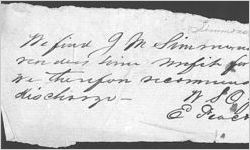 Simmons
We find J M Simmons
renders him unfit for
we therefore recommend
discharge —
W S
E